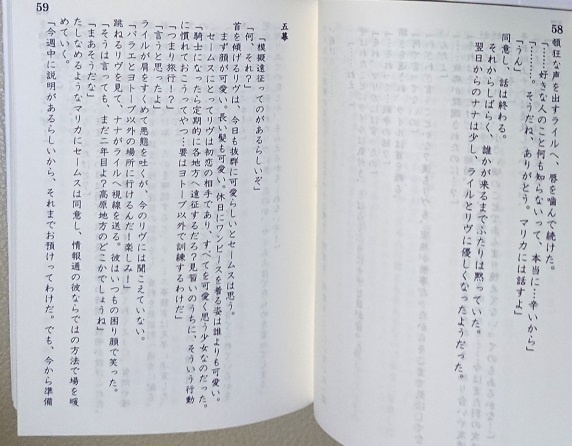 58
頓狂な声を出すライルへ、唇を噛んで続けた。
「……好きな人のこと何も知らないって、本当に…辛いから」
「……そうだね、ありがとう。マリカには話すよ」
「うん」
同意し、話は終わる。
それからしばらく、誰かが来るまでふたりは黙っていた。
翌日からのナナは少し、ライルとリヴに優しくなったようだった。
59
五幕
「模擬遠征ってのがあるらしいぞ」
「何、それ?」
首を傾げるリヴは、今日も抜群に可愛らしいとセームスは思う。
まず顔が可愛い。長い髪も可愛い。休日にワンピースを着る姿は誰よりも可愛い。
セームスにとってリヴは初恋の相手であり、すべてを可愛く思う少女なのだった。
「騎士になったら定期的に各地方へ遠征するだろ?見習いのうちに、そういう行動
に慣れておこうってやつ…要はヨトーブ以外で訓練するわけだ」
「つまり旅行!?」
「言うと思ったよ」
ライルが肩をすくめて悪態を吐くが、今のリヴには聞こえていない。
「バラエとヨトーブ以外の場所に行けるんだ!楽しみ!」
跳ねるリヴを見て、ナナがライルへ視線を送る。彼はいつもの困り顔で笑った。
「そうは言っても、まだ二年目よ?高原地方のどこかでしょうね」
「まあそうだな」
たしなめるようなマリカにセームスは同意し、情報通の彼ならではの方法で場を暖
めていく。
「今週中に説明があるらしいから、それまでお預けってわけだ。でも、今から準備